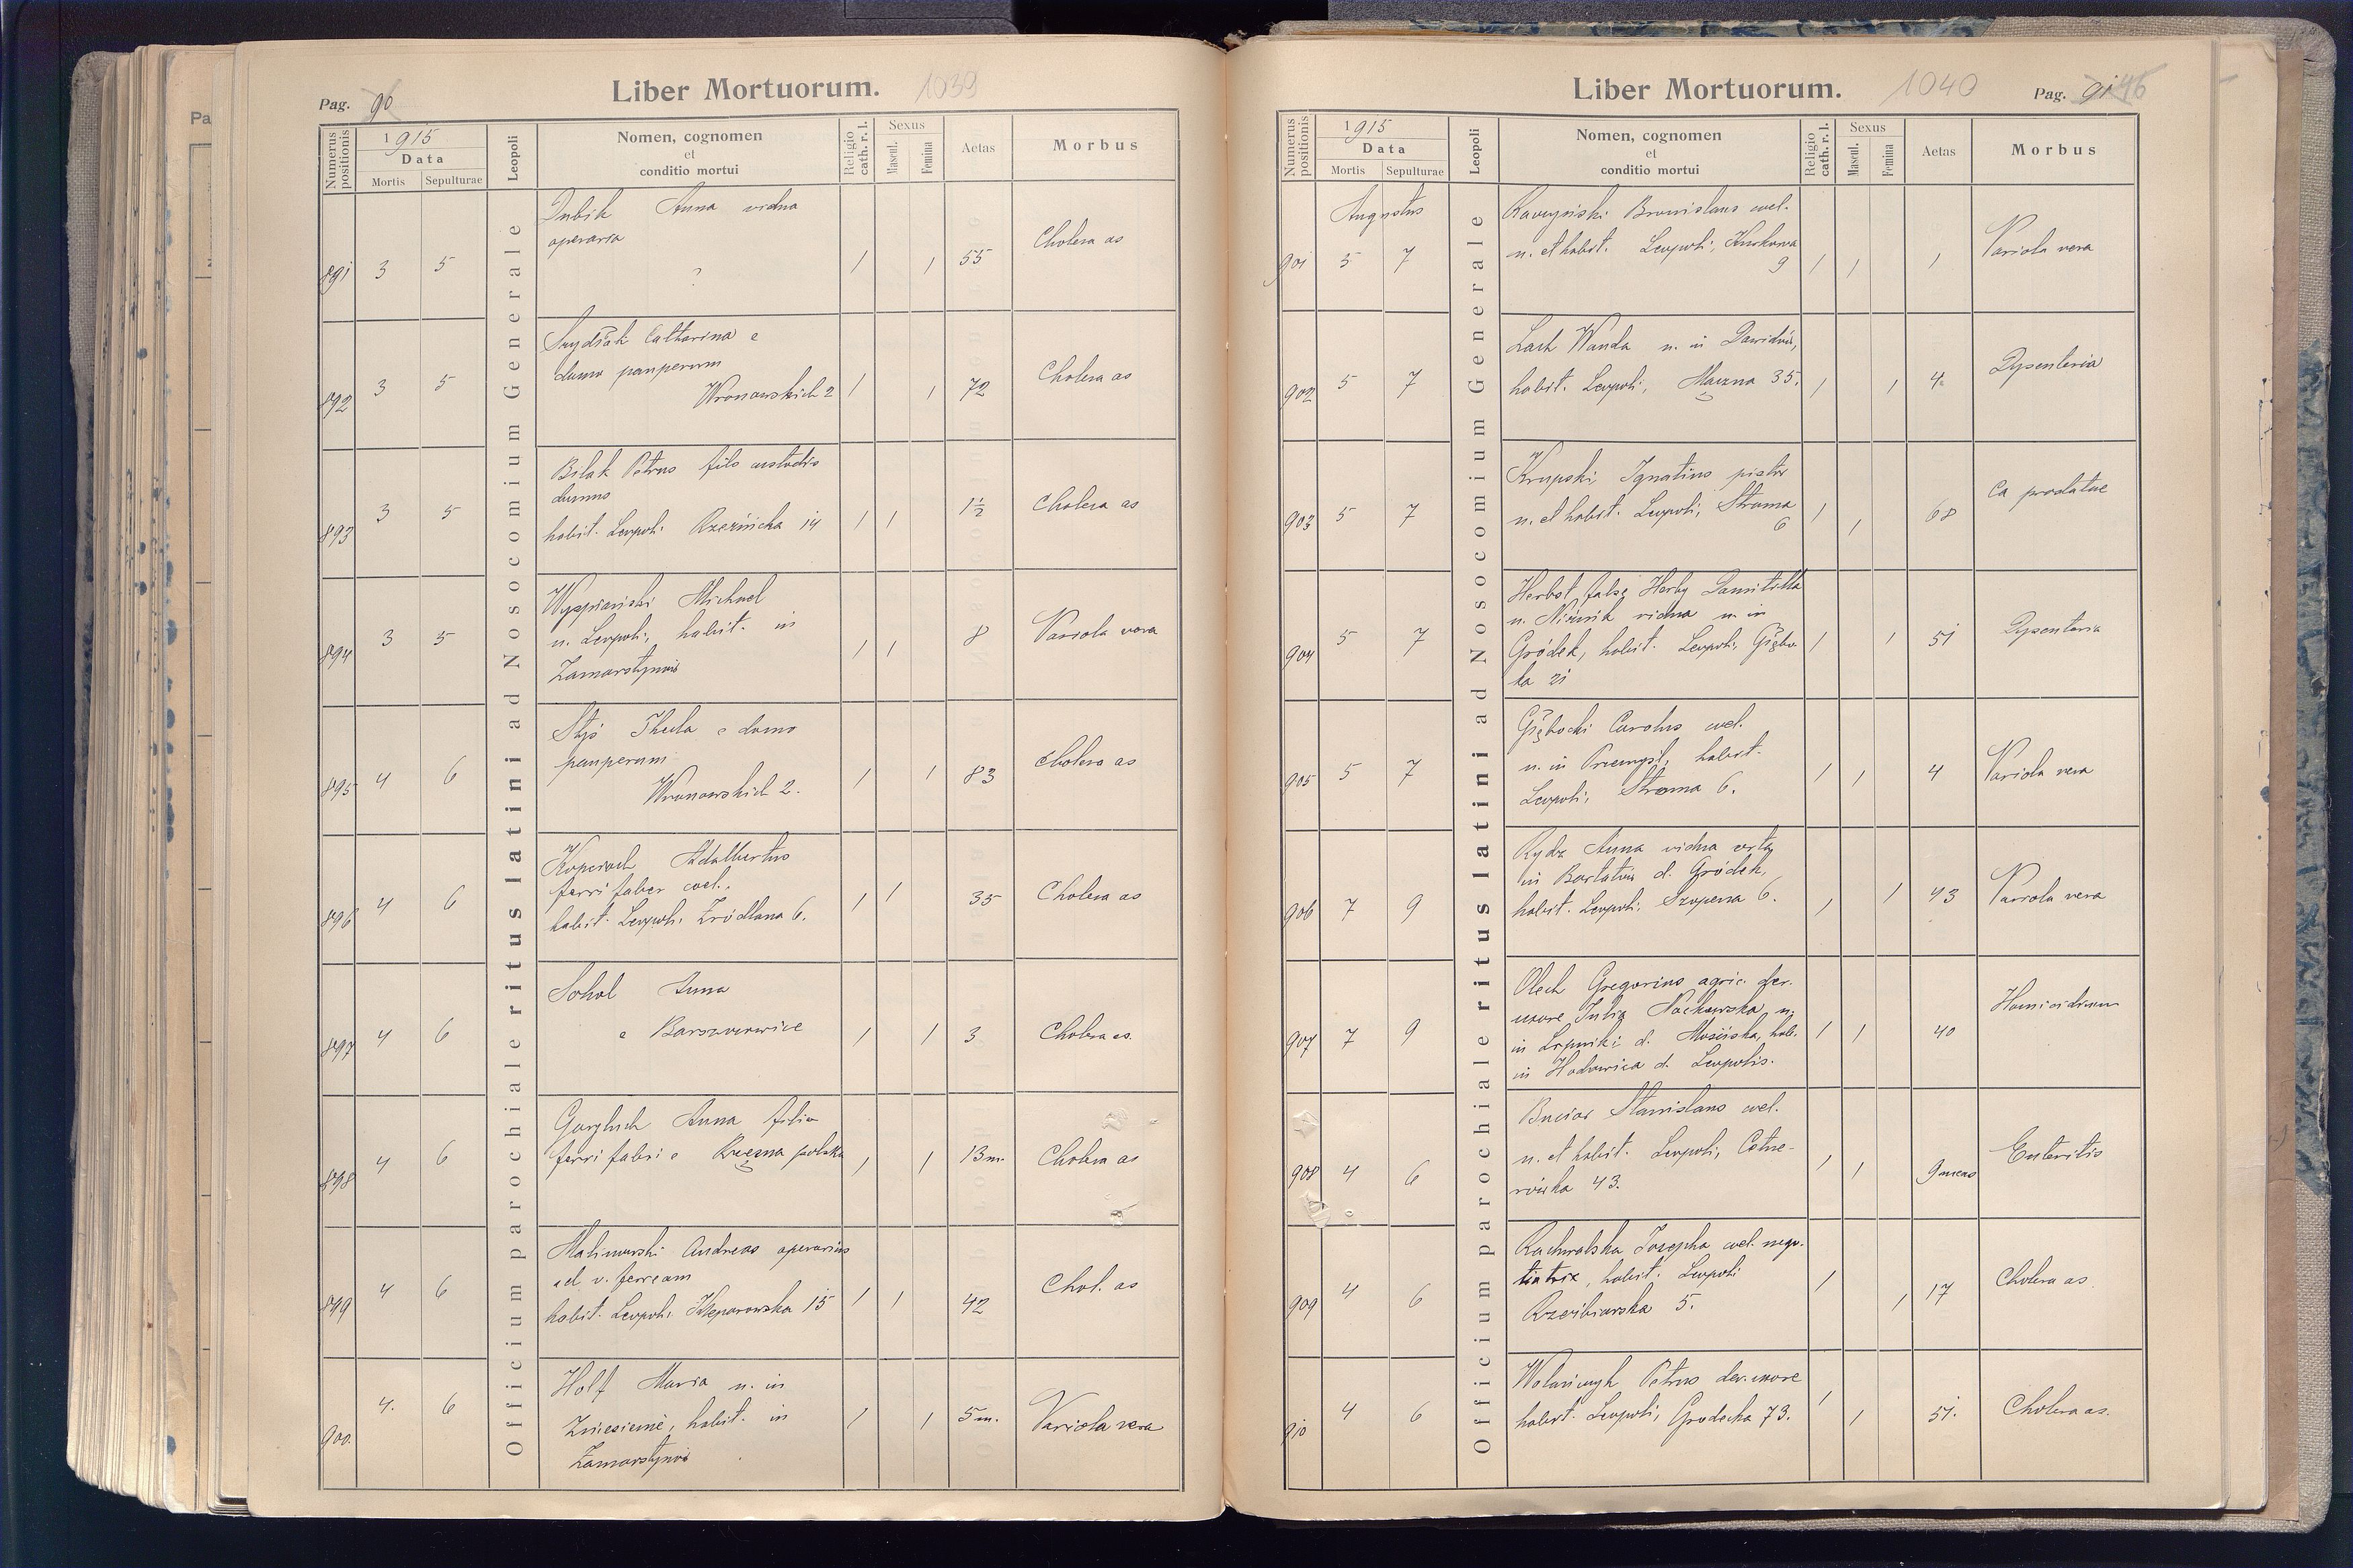 Liber Mortuorum. 1039
Pag. 90
Numerus positionis
1915
Data
Mortis Sepulturae
Leopoli
Nomen, cognomen
et
conditio mortui
Religio cath. r. l.
Sexus
Mascul. Femina
Aetas
Morbus
Officium parochiale ritus latini ad Nosocomium Generale
Dubik Anna vidua
operaria
?
891 3 5 1 1 55 Cholera as
Catharina e
domo pauperum
Wronowskich 2
892 3 5 1 1 72 Cholera as
Bilak Petrus custodis
domus
habit. Leopoli
893 3 5 1 1 1½ Cholera as
Wyspiański Michael
n. Leopoli, habit. in
Zamarstynów
894 3 5 1 1 8 Variola vera
Thecla e domo
pauperum
Wronowskich 2.
895 4 6 1 1 83 Cholera as
Adalbertus
ferri faber coel.
habit. Leopoli Źródlana 6.
896 4 6 1 1 35 Cholera as
Sokol Anna
e
897 4 6 1 1 3 Cholera as.
Anna filia
ferri fabri e Rzęsna polska
898 4 6 1 1 13 m. Cholera as
Malinowski Andreas operarius
ad v. ferream
habit. Leopoli Kleparowska 15
899 4 6 1 1 42 Chol. as
Holf Maria n. in
Zniesienie, habit. in
Zamarstynów
900. 4. 6 1 1 5 m. Variola vera
Liber Mortuorum. 1040
Pag. 91 46
Numerus positionis
1915
Data
Mortis Sepulturae
Leopoli
Nomen, cognomen
et
conditio mortui
Religio cath. r. l.
Sexus
Mascul. Femina
Aetas
Morbus
Officium parochiale ritus latini ad Nosocomium Generale
Augustus
Bronislaus coel.
n. et habit. Leopoli, Kurkowa
9
901 5 7 1 1 1 Variola vera
Lach Wanda n. in Dawidów,
habit. Leopoli, 35.
902 5 7 1 1 4 Dysenteria
Krupski Ignatius pistor
n. et habit. Leopoli, Stroma
6
903 5 7 1 1 68 Ca prostatae
Herbst false Herby Domitilla
vidua n. in
Gródek, habit. Leopoli, Głębo
ka 21
904 5 7 1 1 51 Dysenteria
Głębocki Carolus coel.
n. in Przemyśl, habit.
Leopoli, Stroma 6.
905 5 7 1 1 4 Variola vera
Rydz Anna vidua orta
in Bartatów d. Gródek,
habit. Leopoli, Szopena 6.
906 7 9 1 1 43 Variola vera
Olech Gregorius agric. der.
uxore Julia n.
in Lipniki d. Mościska, hab.
in Hodowica d. Leopolis.
907 7 9 1 1 40 Homicidium
Bucior Stanislaus coel.
n. et habit. Leopoli, Cetne-
rówka 43.
908 4 6 1 1 9 mens Enteritis
Rachwalska Josepha coel. nego-
tiatrix, habit. Leopoli
Rzeźbiarska 5.
909 4 6 1 1 17 Cholera as.
Petrus der. uxore
habit. Leopoli, Grodecka 73.
910 4 6 1 1 51. Cholera as.